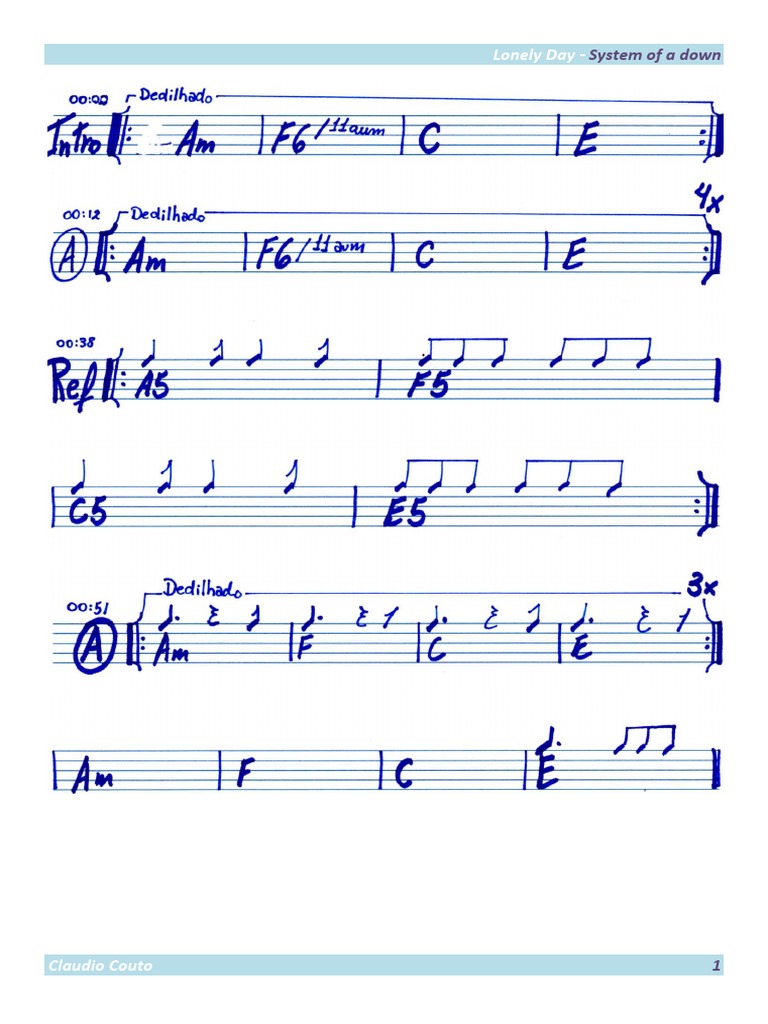 Lonely Day - System of a down
00:00 Dedilhado
Intro Am F6/11aum C E
4x
00:12 Dedilhado
A Am F6/11aum C E
00:38
Ref A5 F5
C5 E5
Dedilhado 3x
00:51
A Am F C E
Am F C E
Claudio Couto 1